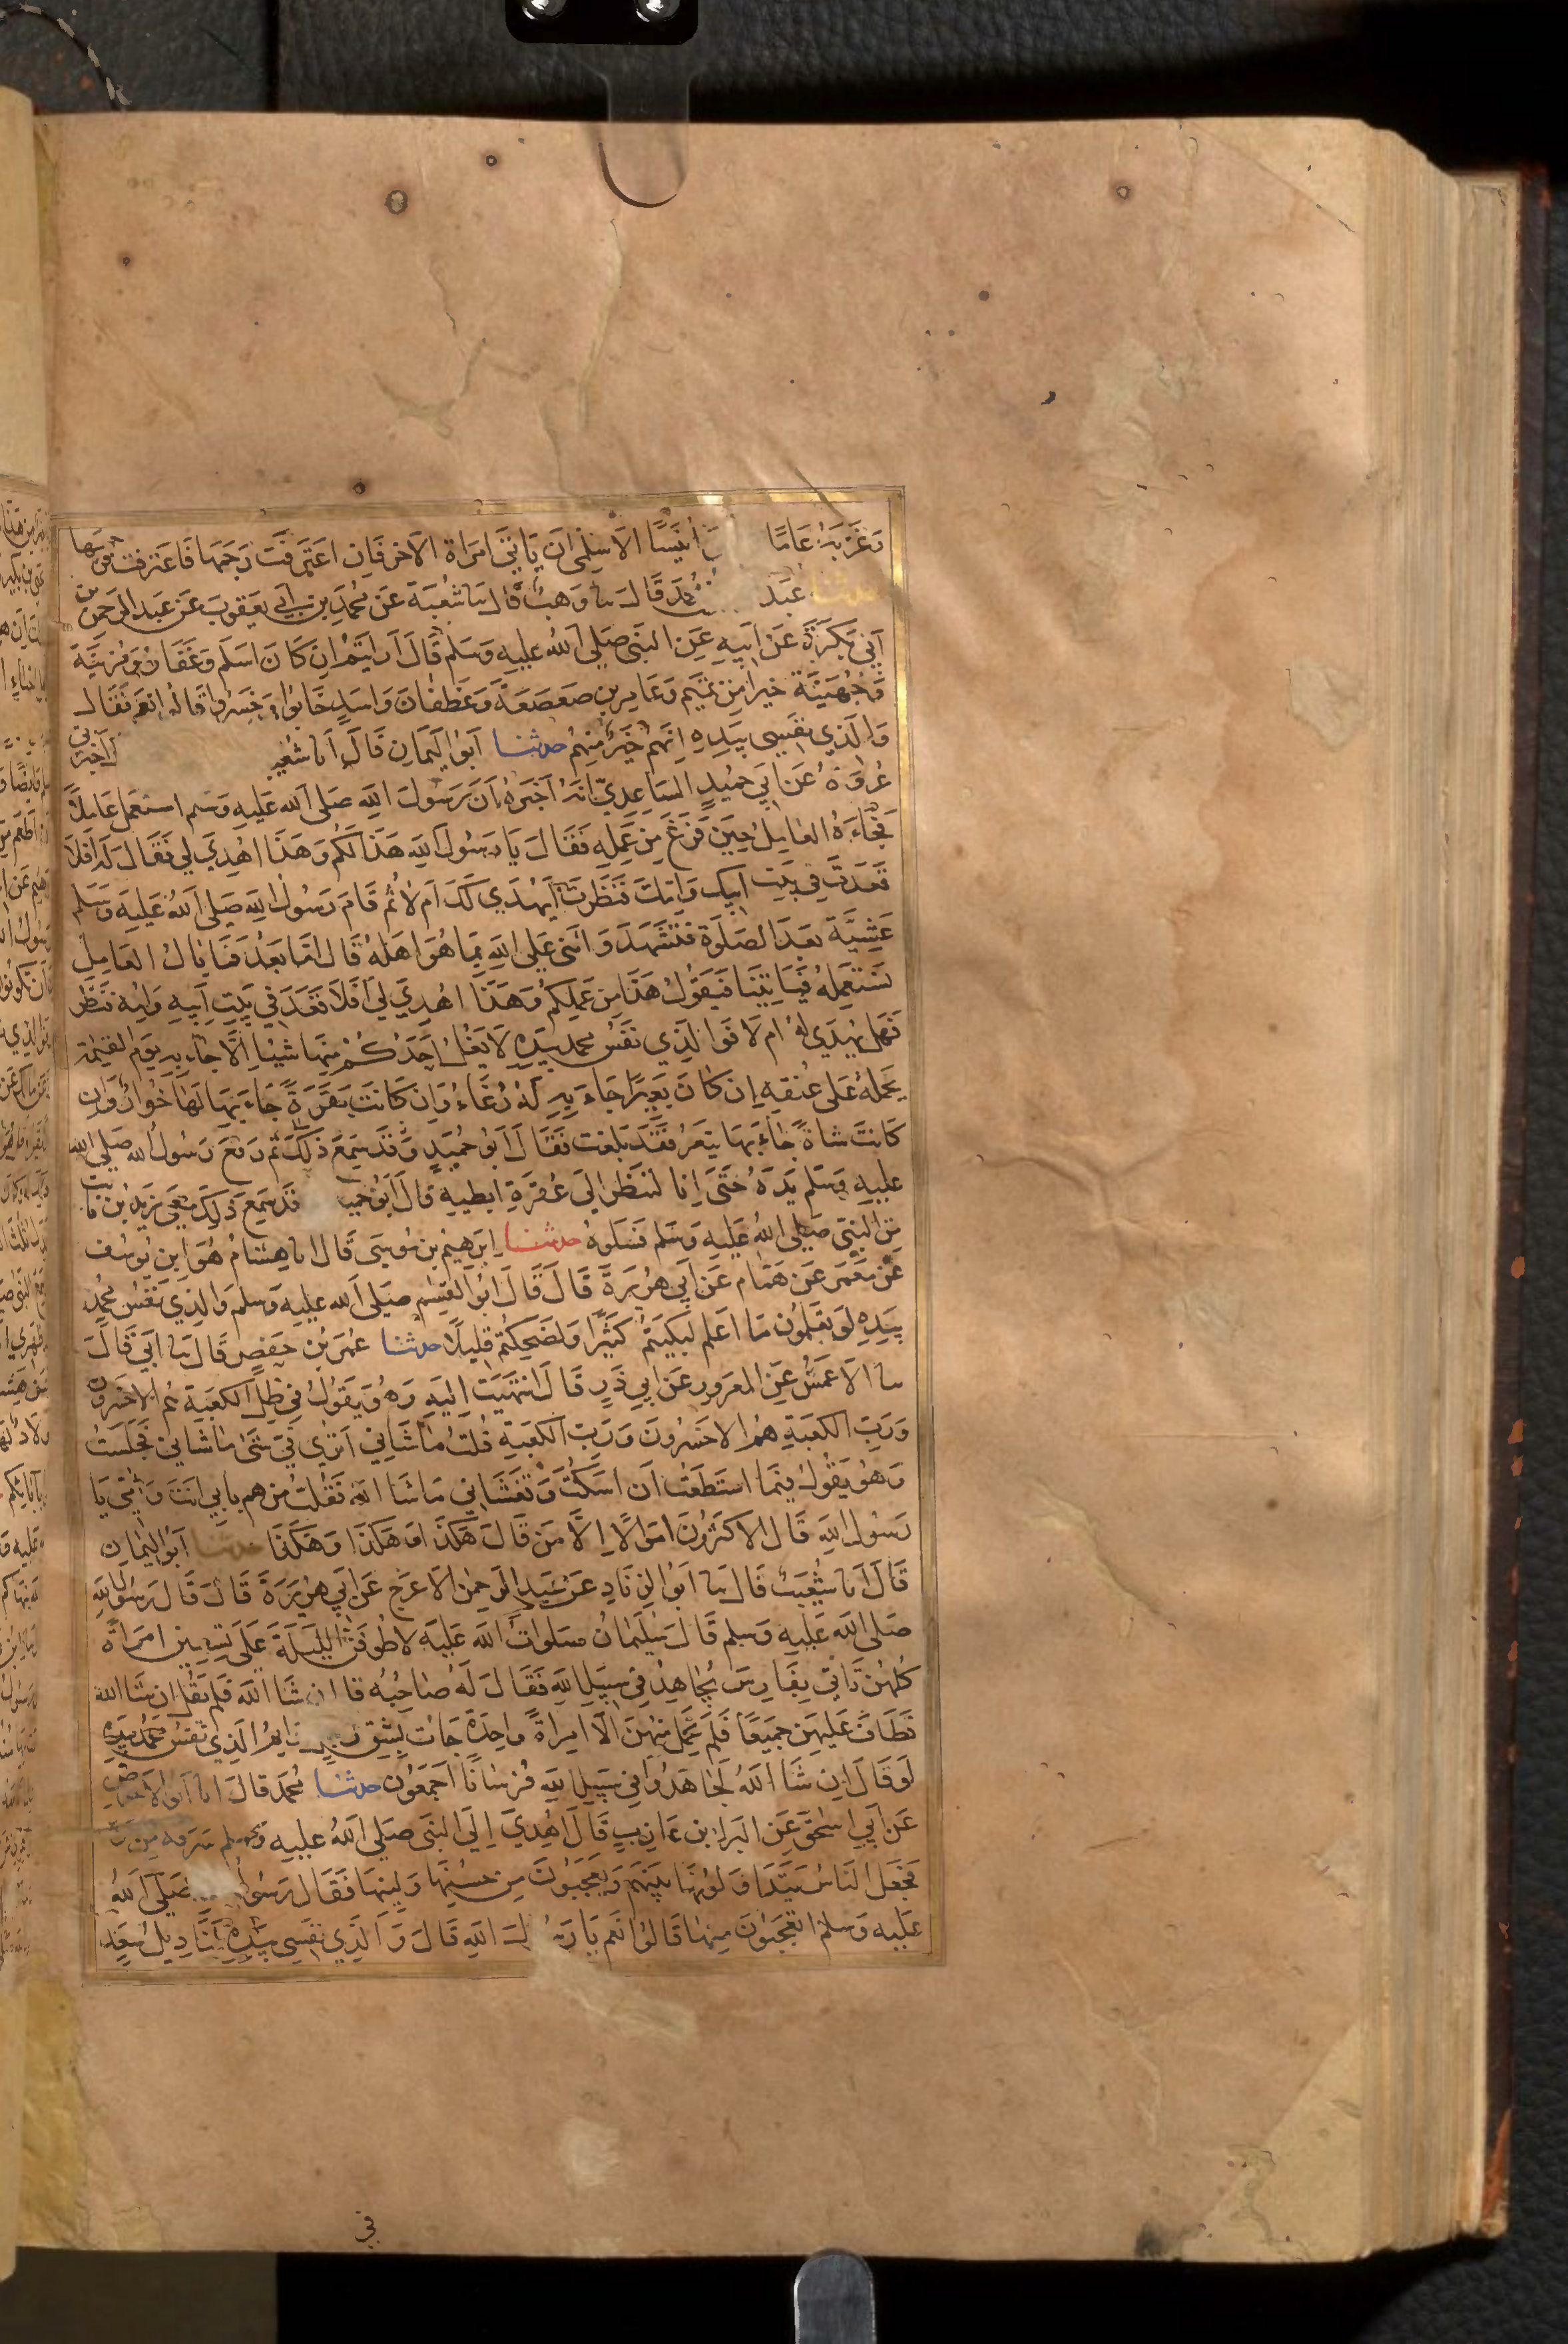 وَغَرَّبَهُ عَامًا أُنَيْسًا الأسلمي ان يَاتي امراة الآخر فان اعترفت رجمها فاعترفت فرجمها
حدثنا عبد محمد قال سا وهب قال سا شعبة عن محمد بن ابي يعقوب عن عبد الرحمن بن
ابي بكرة عن ابيه عن النبي صلى الله عليه وسلم قال ارايتم ان كان اسلم وغفار ومزينة
وجهينة خيرا من تميم وعامر بن صعصعة وغطفان واسد خابوا وخسروا قالوا نعم فقال
والذي نفسي بيده انهم خير منهم حدثنا ابو اليمان قال انا شعيب اخبرني
عروة عن ابي حميد الساعدي انه اخبره ان رسول الله صلى الله عليه وسلم استعمل عاملا
فجاءه العامل حين فرغ من عمله فقال يا رسول الله هذا لكم وهذا اهدي لي فقال له افلا
قعدت في بيت ابيك وامك فنظرت ايهدي لك ام لا ثم قام رسول الله صلى الله عليه وسلم
عشية بعد الصلوة فتشهد واثنى على الله بما هو اهله قال اما بعد فما بال العامل
نستعمله فياتينا فيقول هذا من عملكم وهذا اهدي لي افلا قعد في بيت ابيه وامه فنظر
هل يهدى له ام لا فوالذي نفس محمد بيده لا يغل احدكم منها شيئا الا جاء به يوم القيمة
يحمله على عنقه ان كان بعيرا جاء به له رغاء وان كانت بقرة جاء بها لها خوار وان
كانت شاة جاء بها تيعر فقد بلغت فقال ابو حميد وقد سمع ذلك ثم رفع رسول الله صلى الله
عليه وسلم يده حتى انا لننظر الى عفرة ابطيه قال ابو حميد قد سمع ذلك معي زيد بن ثابت
من النبي صلى الله عليه وسلم فسلوه حدثنا ابرهيم بن موسى قال انا هشام هو ابن يوسف
عن معمر عن همام عن ابي هريرة قال قال ابو القسم صلى الله عليه وسلم والذي نفس محمد
بيده لو تعلمون ما اعلم لبكيتم كثيرا ولضحكتم قليلا حدثنا عمر بن حفص قال سا ابي قال
سا الاعمش عن المعرور عن ابي ذر قال انتهيت اليه وهو يقول في ظل الكعبة هم الاخسرون
ورب الكعبة هم الاخسرون ورب الكعبة قلت ما شاني اترى في شئ ما شاني فجلست
وهو يقول فما استطعت ان اسكت وتغشاني ما شا الله فقلت من هم بابي انت وامي يا
رسول الله قال الاكثرون اموالا الا من قال هكذا وهكذا وهكذا حدثنا ابو اليمان
قال انا شعيب قال سا ابو الزناد عن عبد الرحمن الاعرج عن ابي هريرة قال قال رسول الله
صلى الله عليه وسلم قال سليمان صلوات الله عليه لاطوفن الليلة على تسعين امراة
كلهن تاتي بفارس يجاهد في سبيل الله فقال له صاحبه قل ان شا الله فلم يقل ان شا الله
فطاف عليهن جميعا فلم تحمل منهن الا امراة واحدة جات بشق وايم الذي نفس محمد بيده
لو قال ان شا الله لجاهدوا في سبيل الله فرسانا اجمعون حدثنا محمد قال انا ابو الاحوص
عن ابي اسحق عن البرا بن عازب قال اهدي الى النبي صلى الله عليه وسلم سرقة من
فجعل الناس يتداولونها بينهم ويعجبون من حسنها ولينها فقال رسول صلى الله
عليه وسلم اتعجبون منها قالوا نعم يا رسول الله قال والذي نفسي بيده لمناديل سعد
في